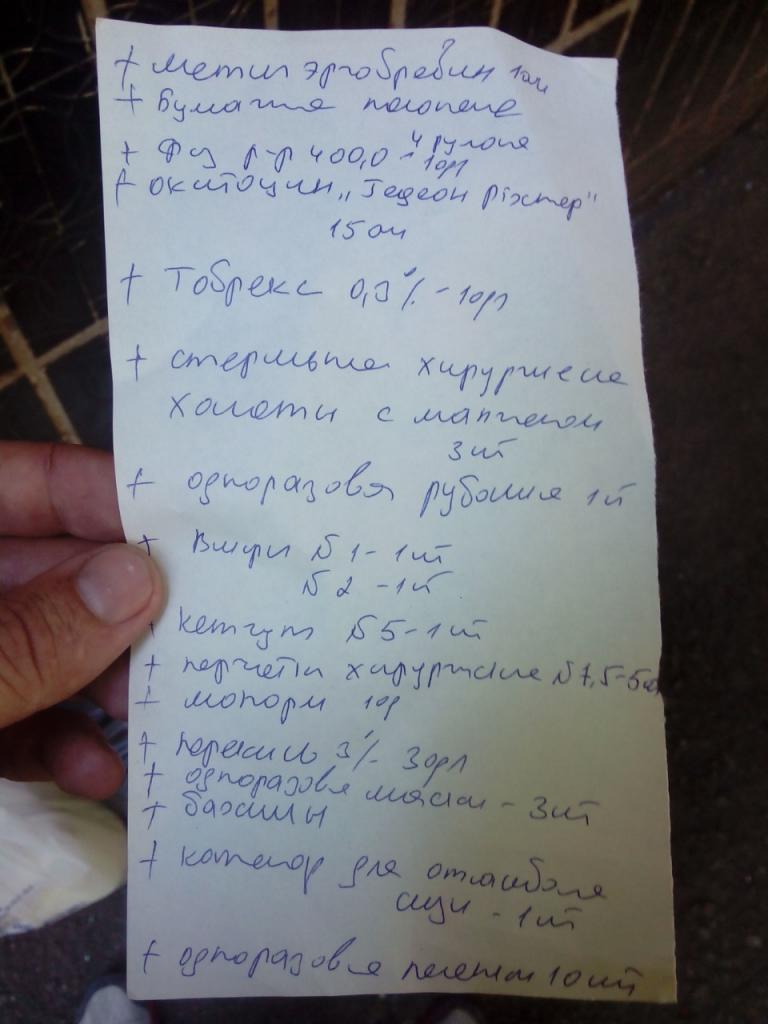 + Метилэргобревин 1 ам
+ Бумажне полотене
4 рулоня
+ Физ р-р 400,0 - 1 фл
+ окситоцин „Гедеон Ріхтер"
15 ам
+ Тобрекс 0,3% - 1 фл
+ стерильные хирургические
халаты с маниеном
3 шт
+ одноразовая рубашка 1 шт
+ Викрил №1 - 1 шт
№2 - 1 шт
+ кетгут №5 - 1 шт
+ перчатки хирургические №7,5 - 5
+
+ перекись 3% - 3 фл
+ одноразовые маски - 3 шт
+ бахилы
+ катетор для отсасывания
слизи - 1 шт
+ одноразовые пеленки 10 шт